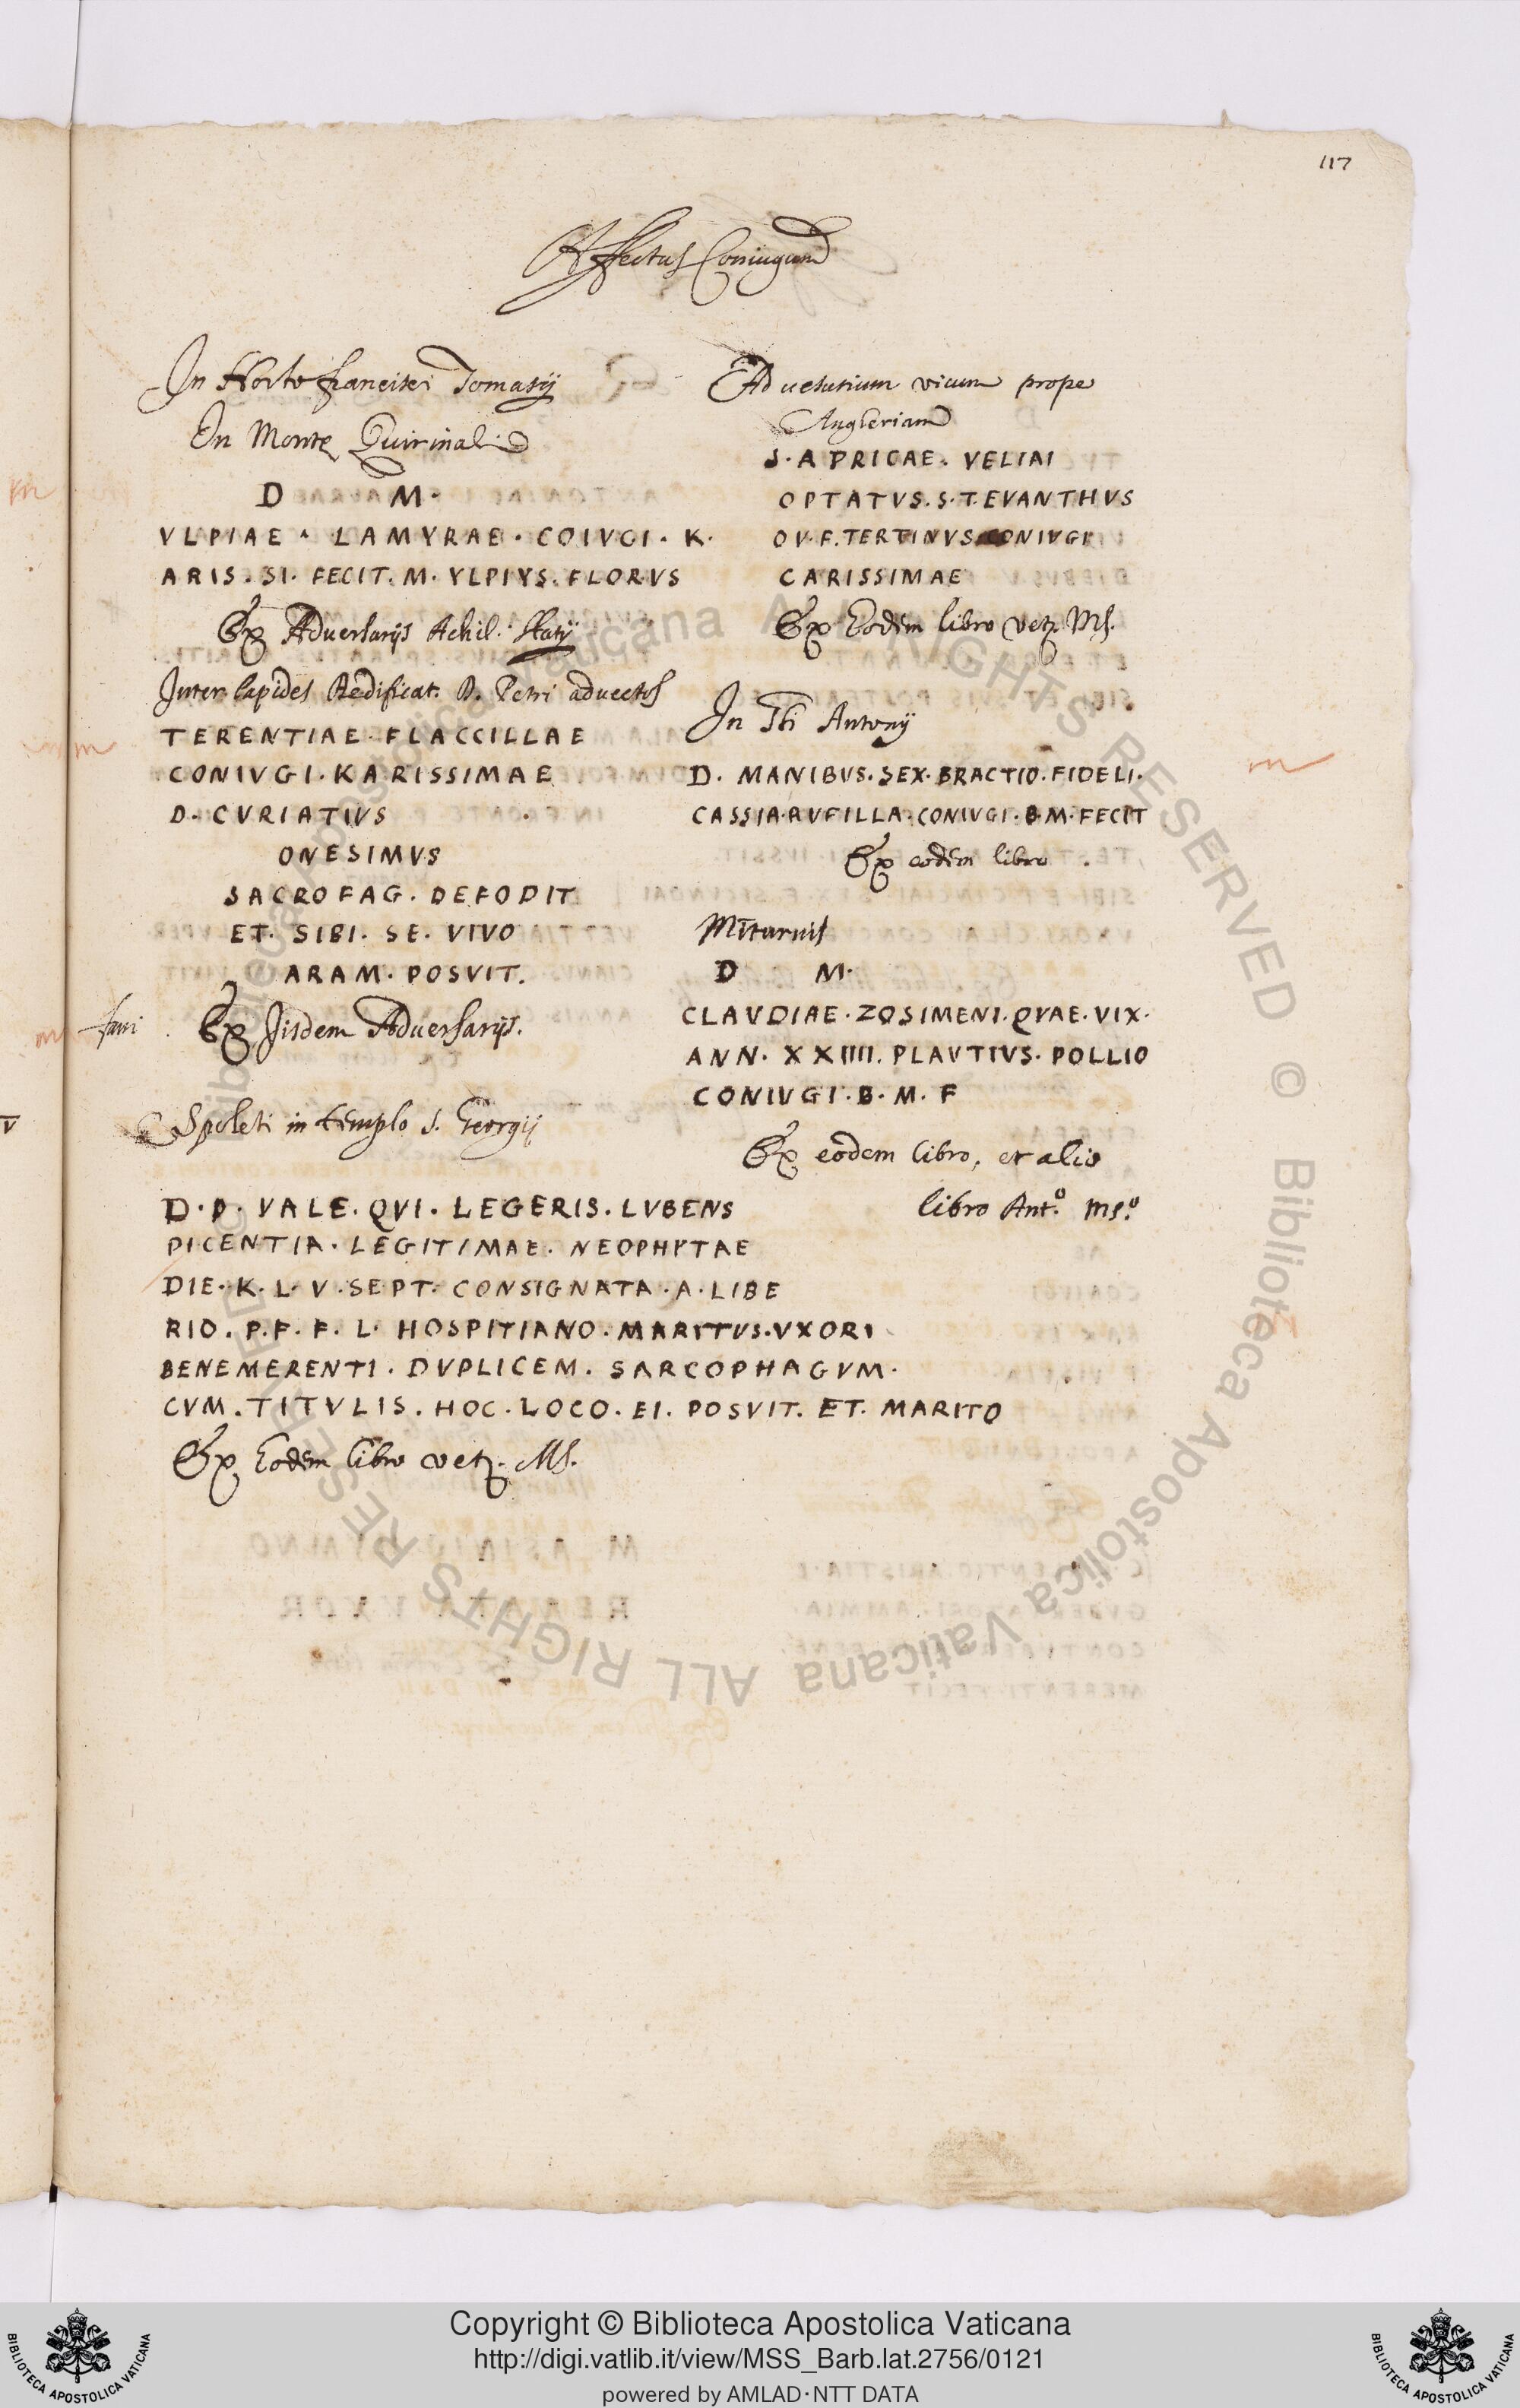 117
Affectus Coniugum
In Horto francisci Tomasij
In Monte Quirinali
D M·
VLPIAE · LAMYRAE · COIVGI · K·
ARIS . SI . FECIT. M. VLPIVS. FLORVS
Ex Adversarijs Achil. Statij
Inter lapides Aedificat. D. Petri advectos
TERENTIAE· FLACCILLAE
CONIVGI. KARISSIMAE
D. CVRIATIVS
ONESIMVS
SACROFAG. DEFODIT
ET. SIBI. SE. VIVO
ARAM. POSVIT.
Ex Jisdem Adversarijs.
Spoleti in templo S. Georgij
D. P. VALE. QVI. LEGERIS. LVBENS
PICENTIA. LEGITIMAE. NEOPHYTAE
DIE. K. L. V. SEPT. CONSIGNATA. A. LIBE
RIO. P. F. F. L. HOSPITIANO. MARITVS. VXORI
BENEMERENTI. DVPLICEM. SARCOPHAGVM.
CVM. TITVLIS. HOC. LOCO. EI. POSVIT. ET. MARITO
Ex Eodem libro vet. MS.
Ad vicum prope
Angleriam
S. APRICAE. VELIAI
OPTATVS. S. T. EVANTHVS
OV. F. TERTINVS CONIVGI
CARISSIMAE
Ex Eodem libro vet. MS.
In Antonij
D. MANIBVS. SEX. BRACTIO. FIDELI.
CASSIA. RVFILLA. CONIVGI. B. M. FECIT
Ex eodem libro
D M.
CLAVDIAE. ZOSIMENI. QVAE. VIX.
ANN. XXIIII. PLAVTIVS. POLLIO
CONIVGI. B. M. F
Ex eodem libro, et alio
libro Ant.º ms.º
© Biblioteca Apostolica Vaticana ALL RIGHTS RESERVED © Biblioteca Apostolica Vaticana ALL RIGHTS RESERVED
BIBLIOTECA APOSTOLICA VATICANA
Copyright © Biblioteca Apostolica Vaticana
http://digi.vatlib.it/view/MSS_Barb.lat.2756/0121
powered by AMLAD·NTT DATA
BIBLIOTECA APOSTOLICA VATICANA